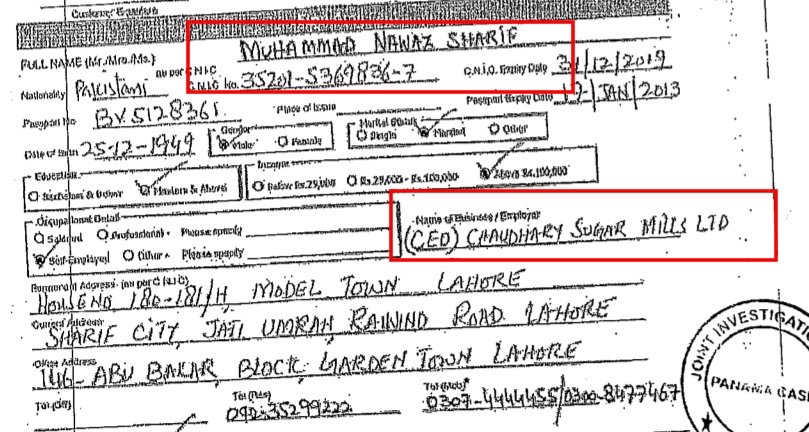 Customer
FULL NAME (Mr./Mrs./Ms.) MUHAMMAD NAWAZ SHARIF
as per C.N.I.C
Nationality Pakistani C.N.I.C No. 35201-5369836-7 C.N.I.C. Expiry Date 31/12/2019
Passport No BV5128361 Place of Issue Passport Expiry Date 12/JAN/2013
Date of Birth 25-12-1949 Gender Male Female Marital Status Single Married Other
Education Bachelors & Other Masters & Above Income Below Rs.25,000 Rs.25,000 - Rs.100,000 Above Rs.100,000
Occupational Detail Name of Business / Employer
Salaried Professional Please specify (CEO) CHAUDHARY SUGAR MILLS LTD
Self-Employed Other Please specify
Permanent Address (as per C.N.I.C)
HOUSE NO 180-181/H, MODEL TOWN LAHORE
Current Address
SHARIF CITY, JATI UMRAH, RAIWIND ROAD LAHORE
Office Address
146-ABU BAKAR, BLOCK, GARDEN TOWN LAHORE
Tel (Off) Tel (Res) 042-35299222 Tel (Mob) 0307-4444455/0300-8477467
JOINT INVESTIGATI
PANAMA CAS